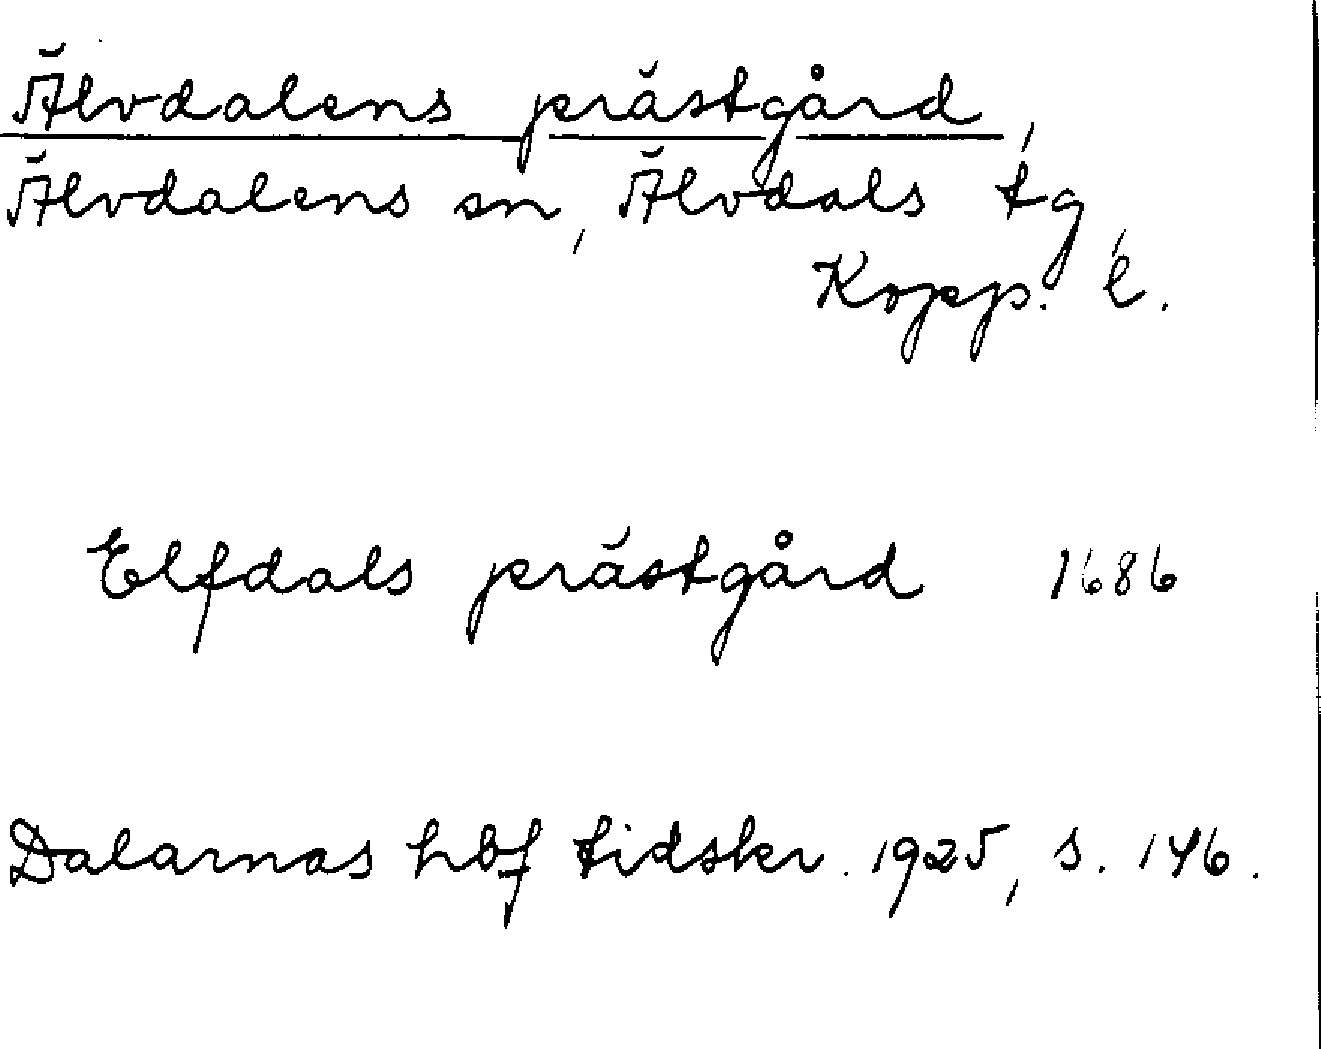 Älvdalens prästgård,
Älvdalens sn, Älvdals tg,
Kopp. l.
Elfdals prästgård 1686
Dalarnas hbf tidskr. 1925, s. 146.